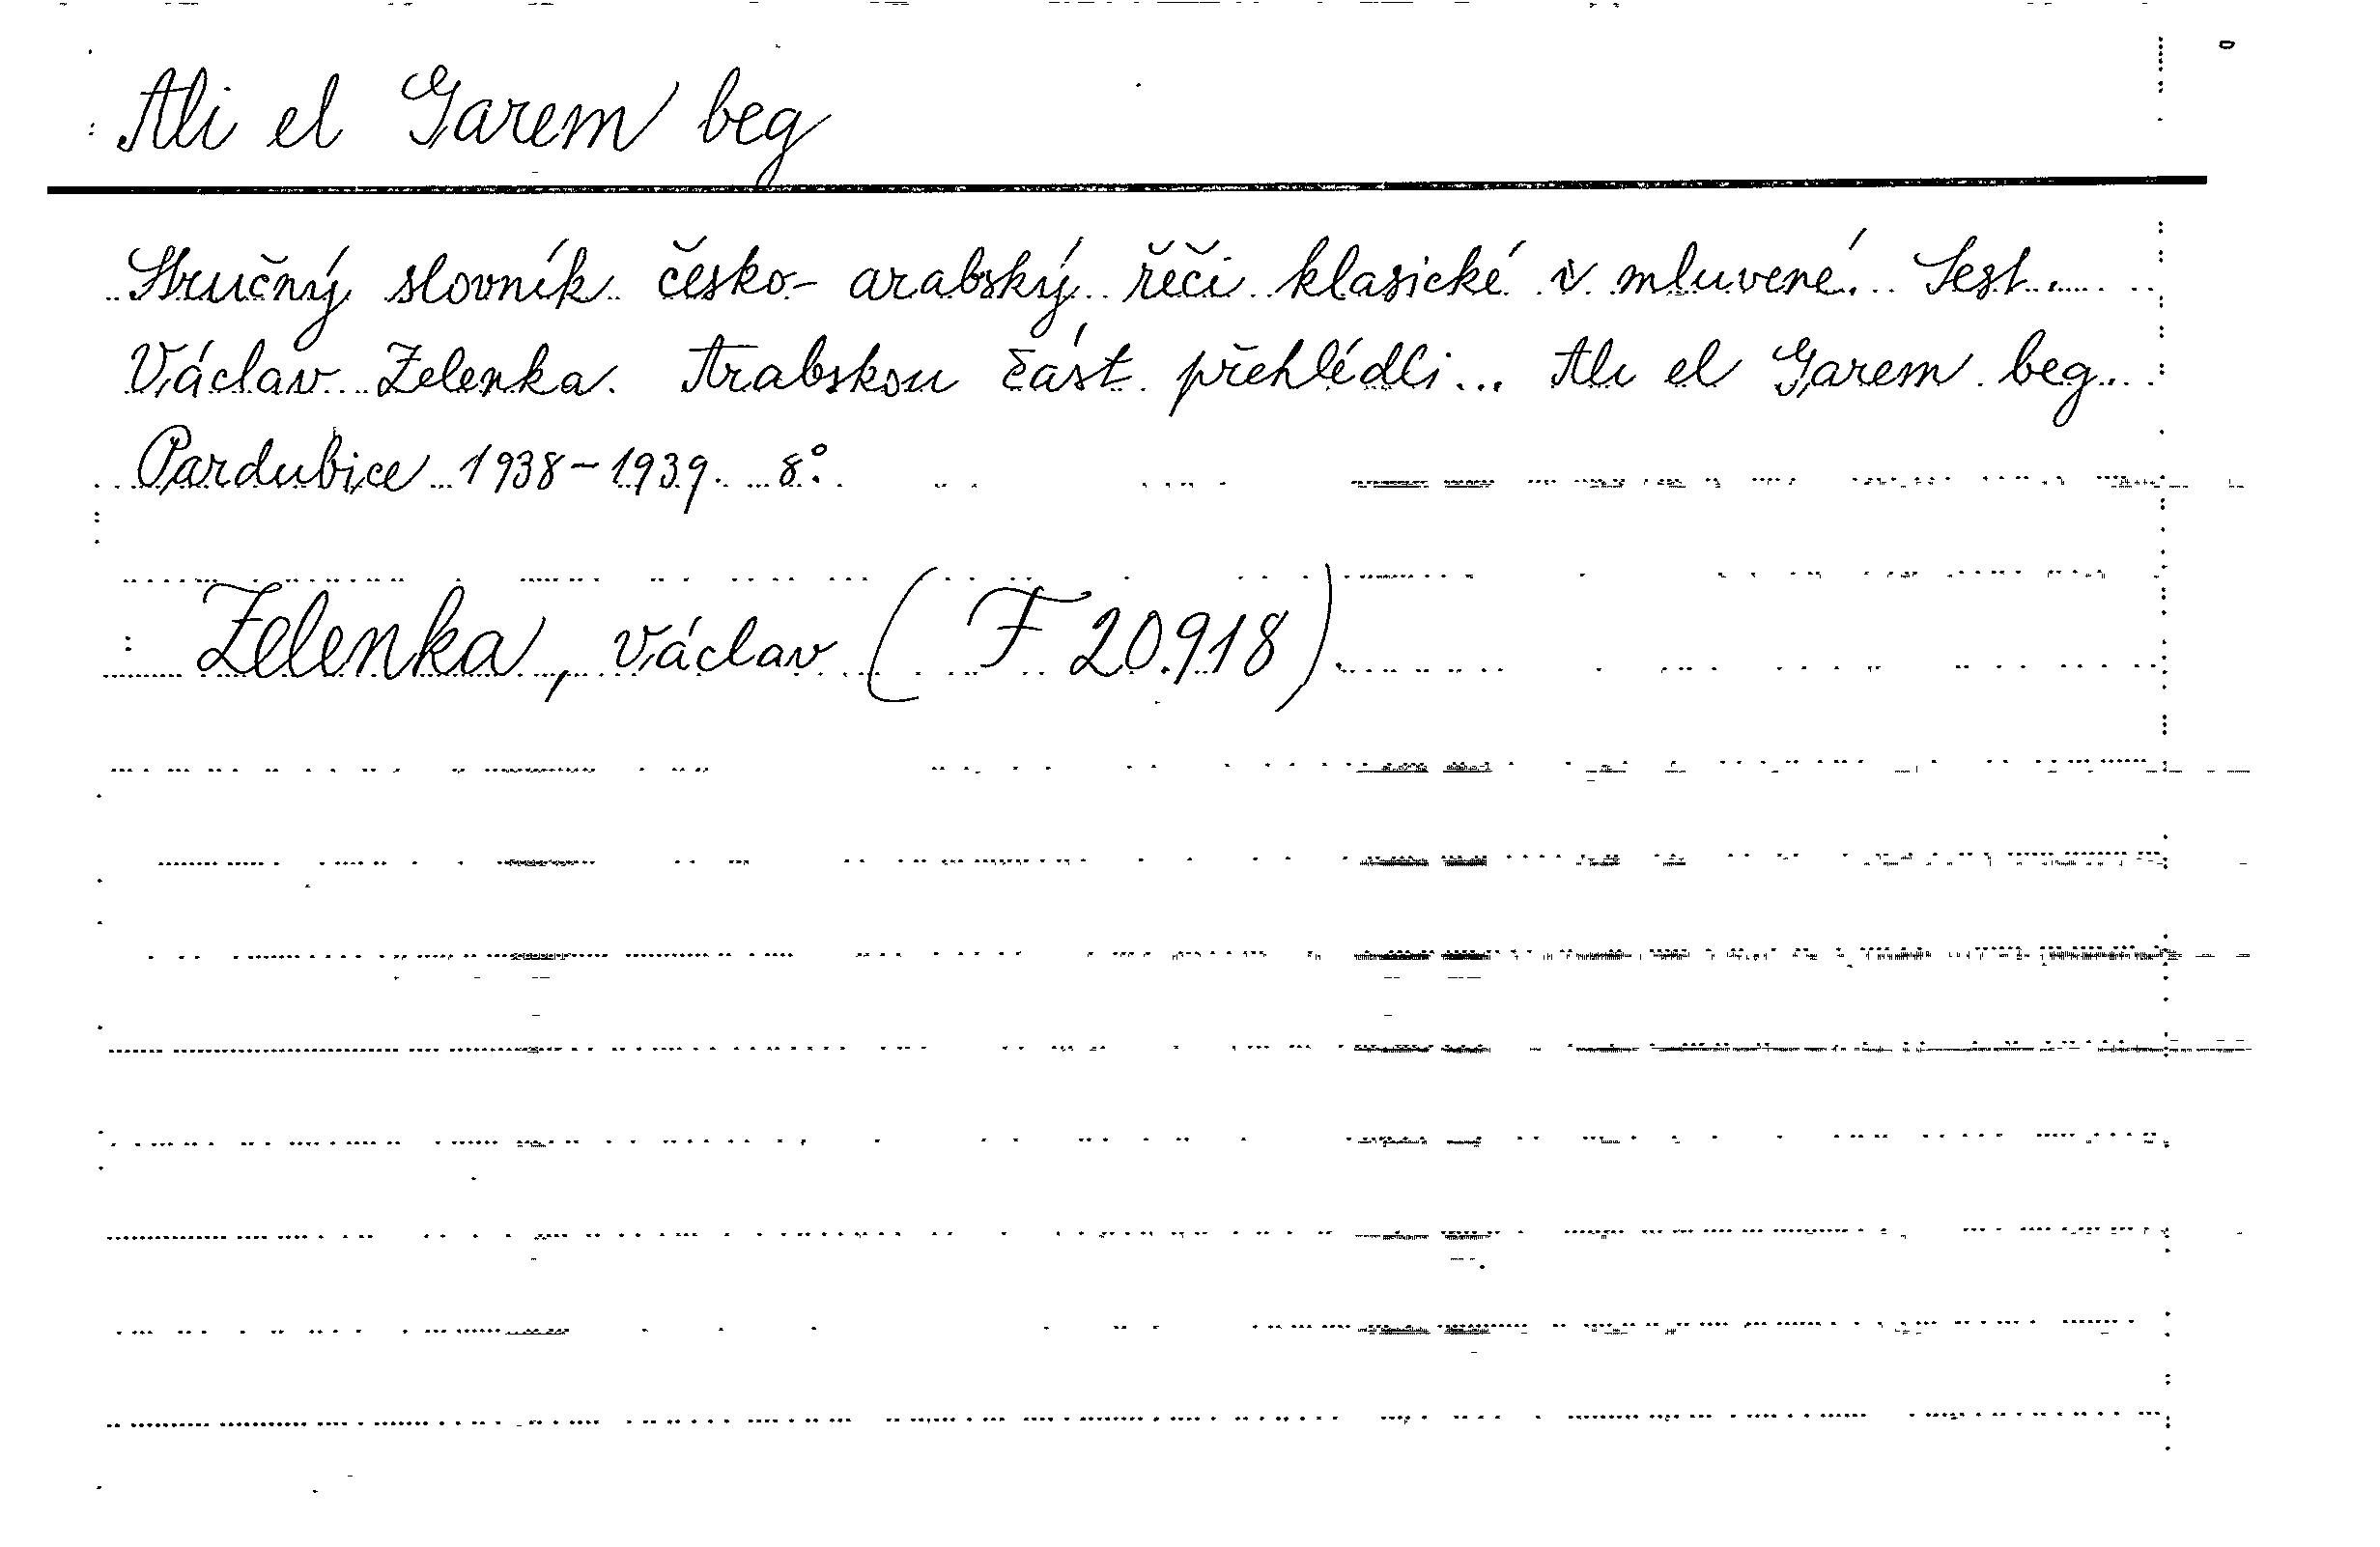 Ali el Garem beg
Stručný slovník česko-arabský řeči klasické i mluvené. Sest.
Václav Zelenka. Arabskou část přehlédli... Ali el Garem beg.
Pardubice 1938-1939. 8°.
Zelenka, Václav (F 20.918).